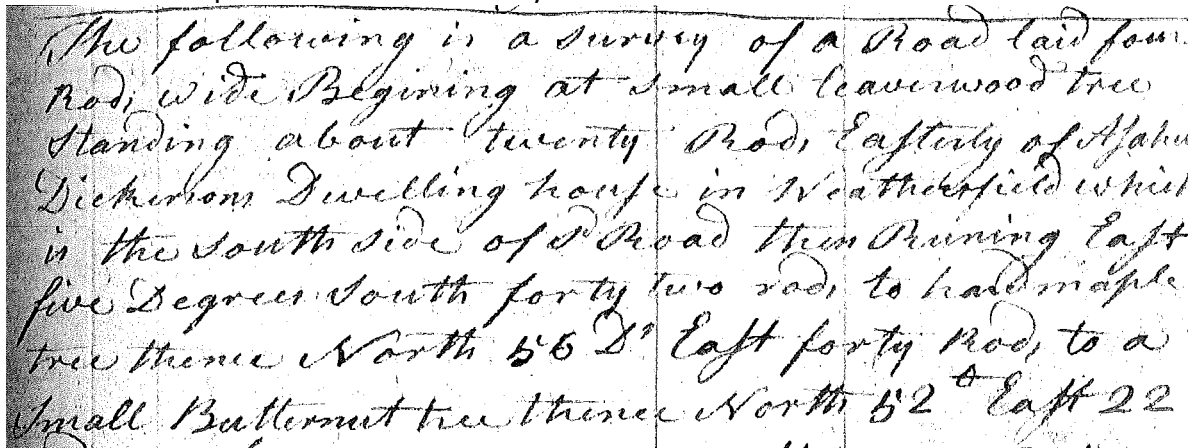 The following is a survey of a Road laid four
Rods wide Begining at Small leaverwood tree
Standing about twenty Rods Easterly of Asahel
Dickinsons Dwelling house in Weathersfield which
is the South side of Sd Road then Runing East
five Degrees South forty two rods to hard maple
tree thence North 56 Ds East forty Rods to a
Small Butternut tree thence North 52 d East 22